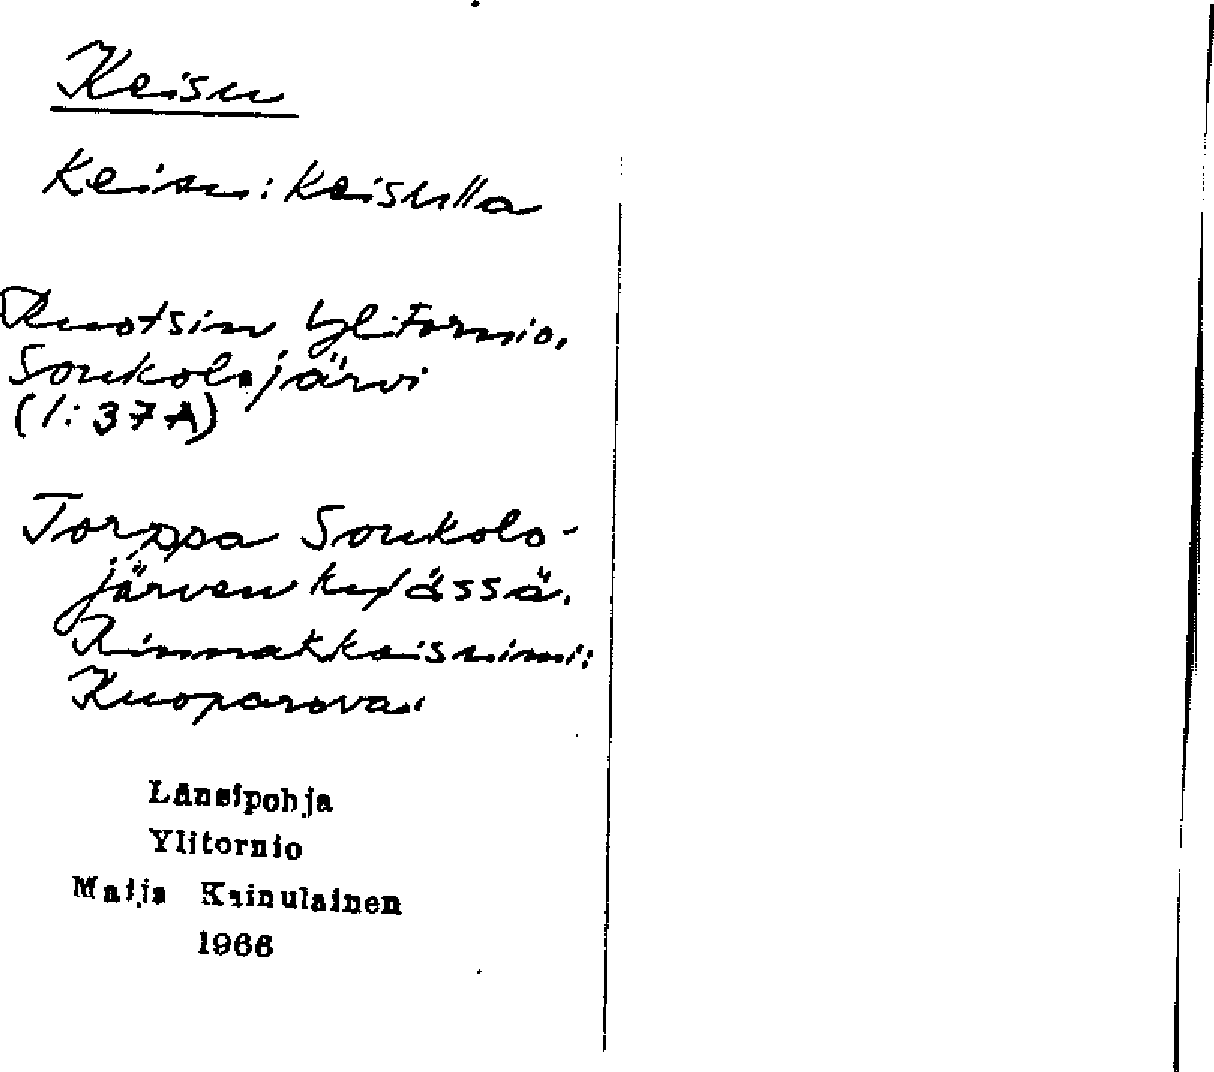 Keisu
Keisu: Keisulla
Ruotsin Ylitornio,
Soukolojärvi
(1: 37A)
Torppa Soukolo-
järven kylässä.
Rinnakkaisnimi:
Kuoparova.
Länsipohja
Ylitornio
Maija Kainulainen
1966